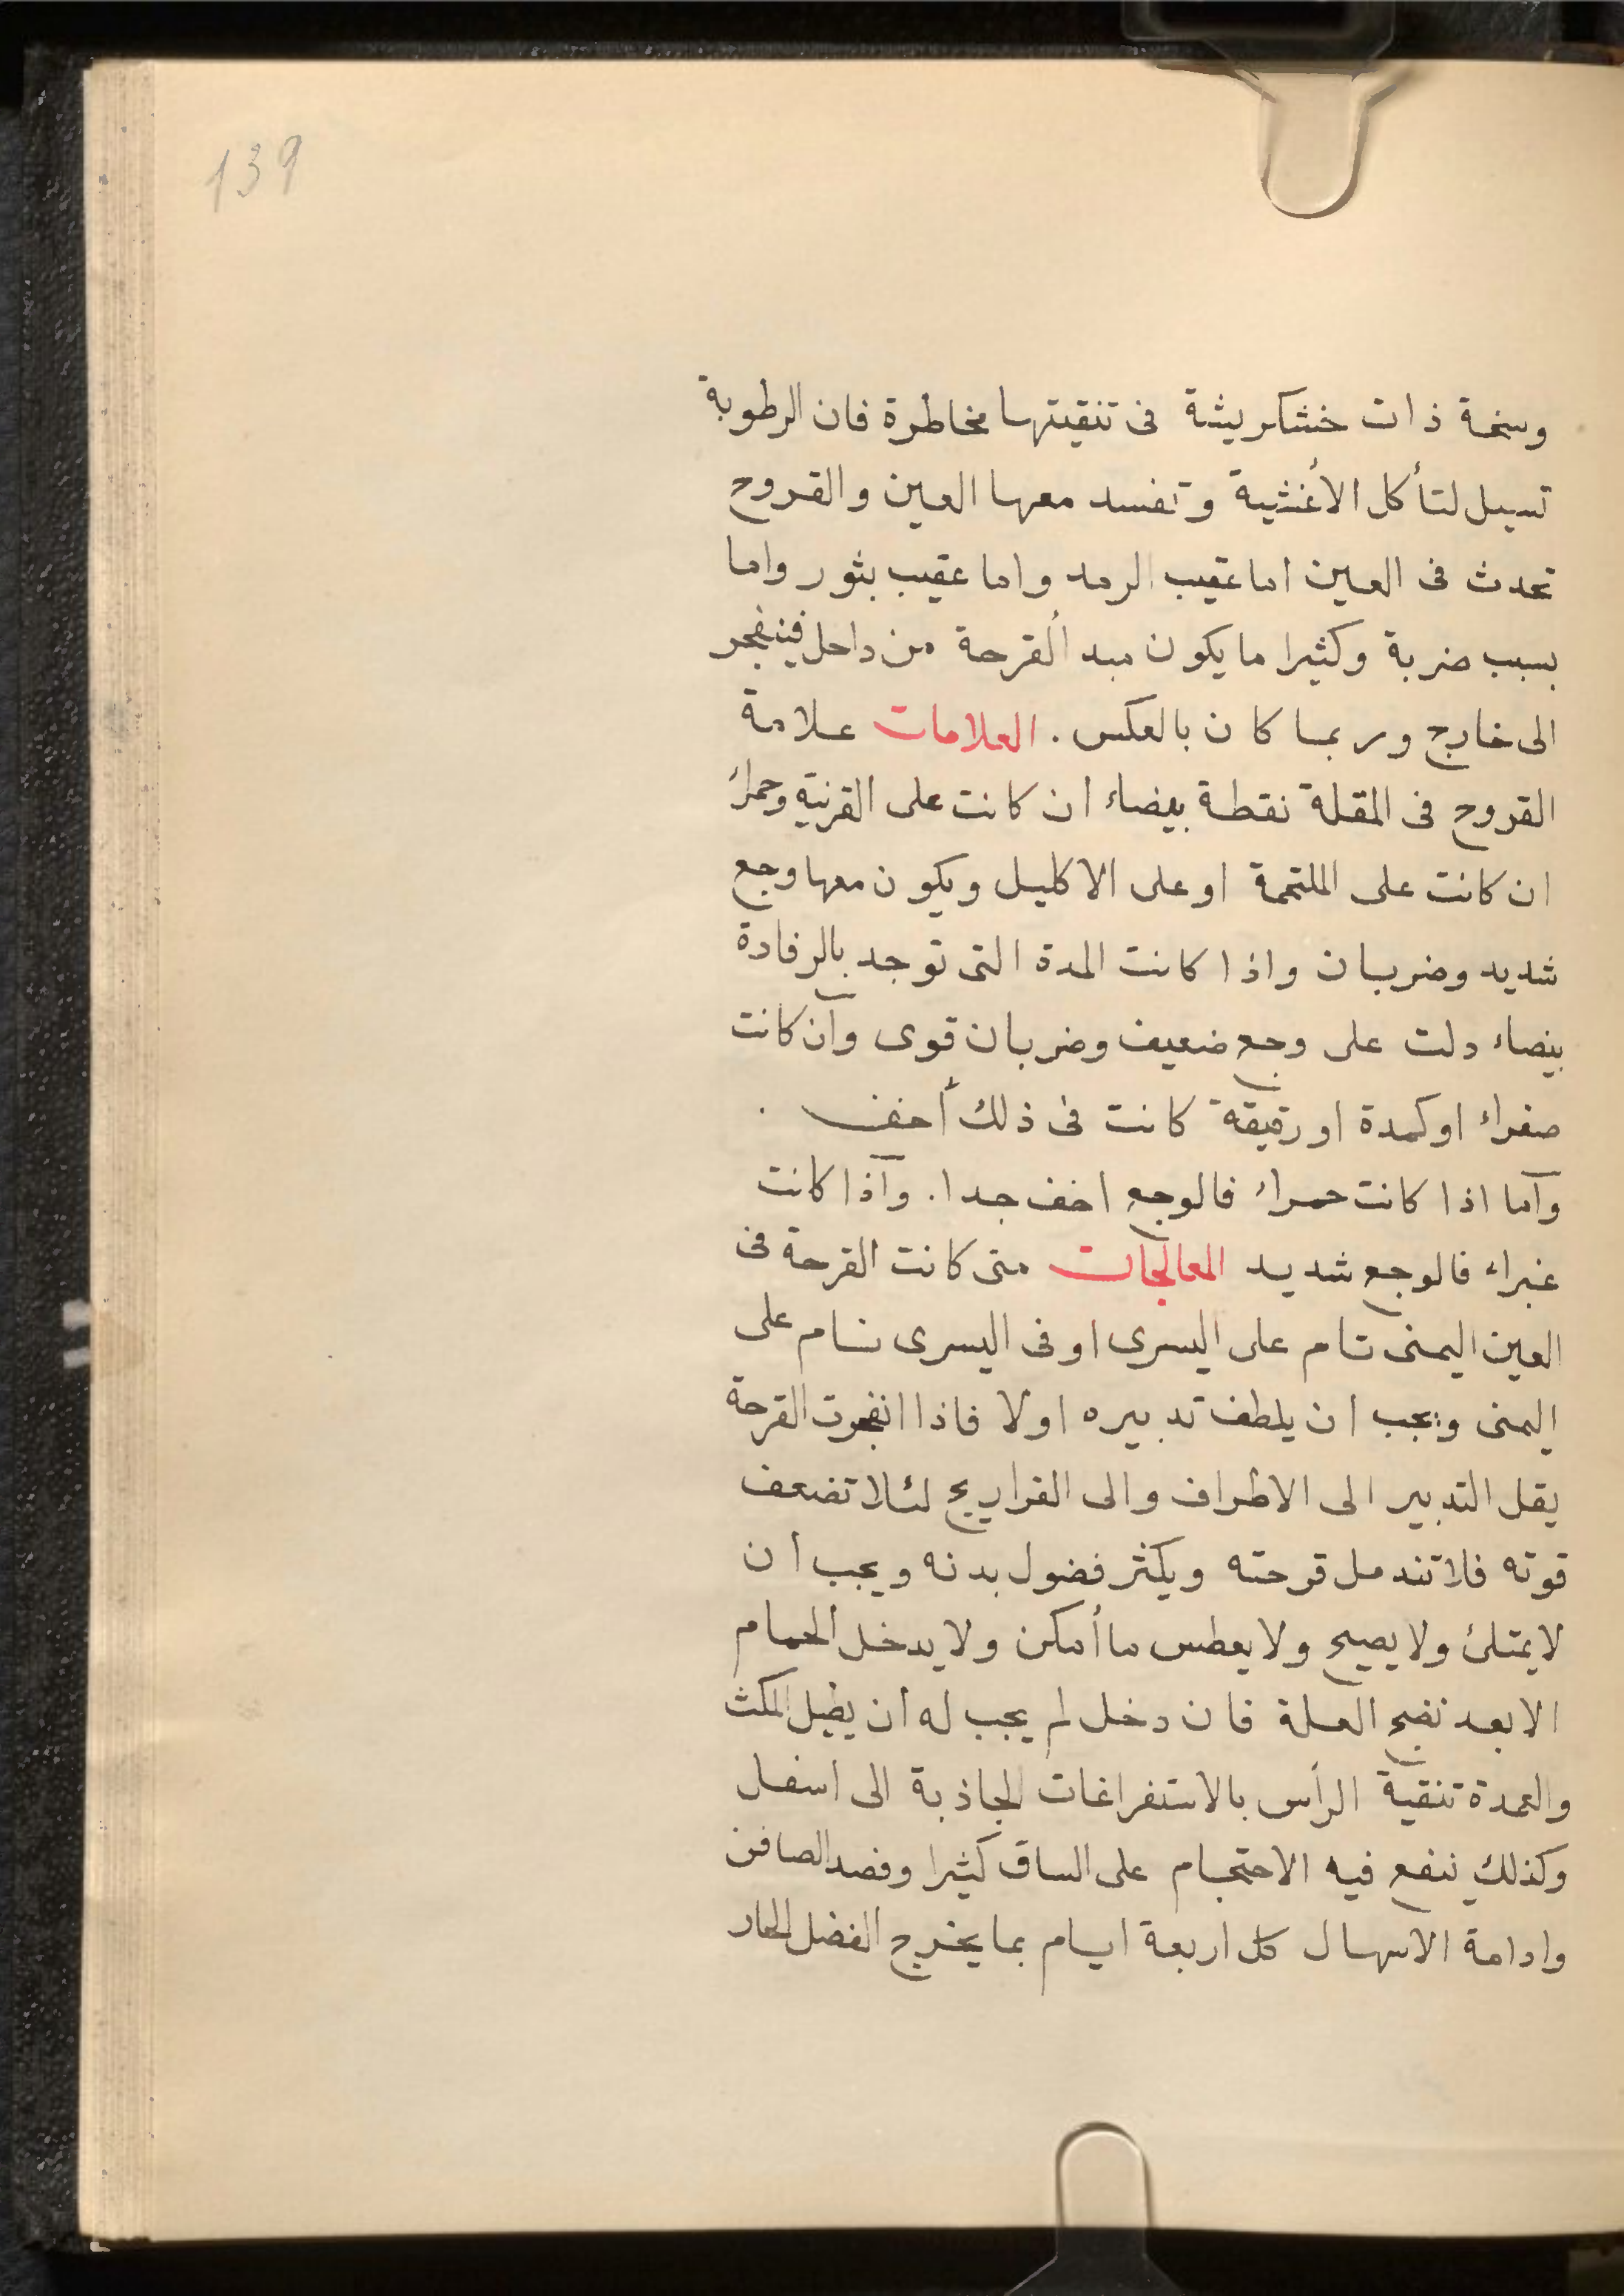 139
وسخة ذات خشكريشة فى تنقيتها مخاطرة فان الرطوبة
تسيل لتأكل الأغشية وتفسد معها العين والقروح
تحدث فى العين اما عقيب الرمد واما عقيب بثور واما
بسبب ضربة وكثيرا ما يكون مبدأ القرحة من داخل فينفجر
الى خارج وربما كان بالعكس . العلامات علامة
القروح فى المقلة نقطة بيضاء ان كانت على القرنية وحمراء
ان كانت على الملتحمة او على الاكليل ويكون معها وجع
شديد وضربان واذا كانت المدة التى توجد بالرفادة
بيضاء دلت على وجع ضعيف وضربان قوى وان كانت
صفراء او كمدة او رقيقة كانت فى ذلك أخف .
واما اذا كانت حمراء فالوجع اخف جدا . واذا كانت
غبراء فالوجع شديد المعالجات متى كانت القرحة فى
العين اليمنى تنام على اليسرى او فى اليسرى ننام على
اليمنى ويجب ان يلطف تدبيره اولا فاذا انفجرت القرحة
يقل التدبير الى الاطراف والى الفراريج لئلا تضعف
قوته فلا تندمل قرحته ويكثر فضول بدنه ويجب ان
لا يمتلئ ولا يصيح ولا يعطس ما أمكن ولا يدخل الحمام
الا بعد نضج العلة فان دخل لم يجب له ان يطيل المكث
والعمدة تنقية الرأس بالاستفراغات الجاذبة الى اسفل
وكذلك ينفع فيه الاحتجام على الساق كثيرا وفصد الصافن
وادامة الاسهال كل اربعة ايام بما يخرج الفضل الحار